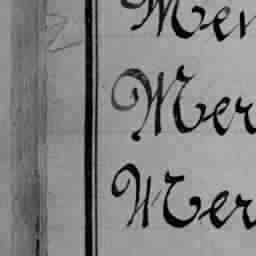 Mer
Mer
Mer